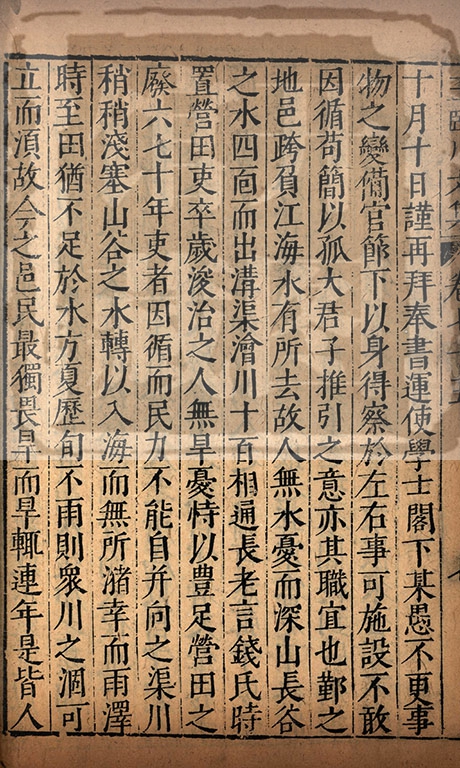 十月十日謹再拜奉書運使學士閣下某愚不更事
物之變備官節下以身得察於左右事可施設不敢
因循苟簡以孤大君子推引之意亦其職宜也鄞之
地邑跨負江海水有所去故人無水憂而深山長谷
之水四靣而出溝渠澮川十百相通長老言錢氏時
置營田吏卒歲浚治之人無旱憂恃以豊足營田之
廢六七十年吏者因循而民力不能自并向之渠川
稍稍淺塞山谷之水轉以入海而無所潴幸而雨澤
時至田猶不足於水方夏歷旬不雨則衆川之涸可
立而湏故今之邑民最獨畏旱而旱輙連年是皆人